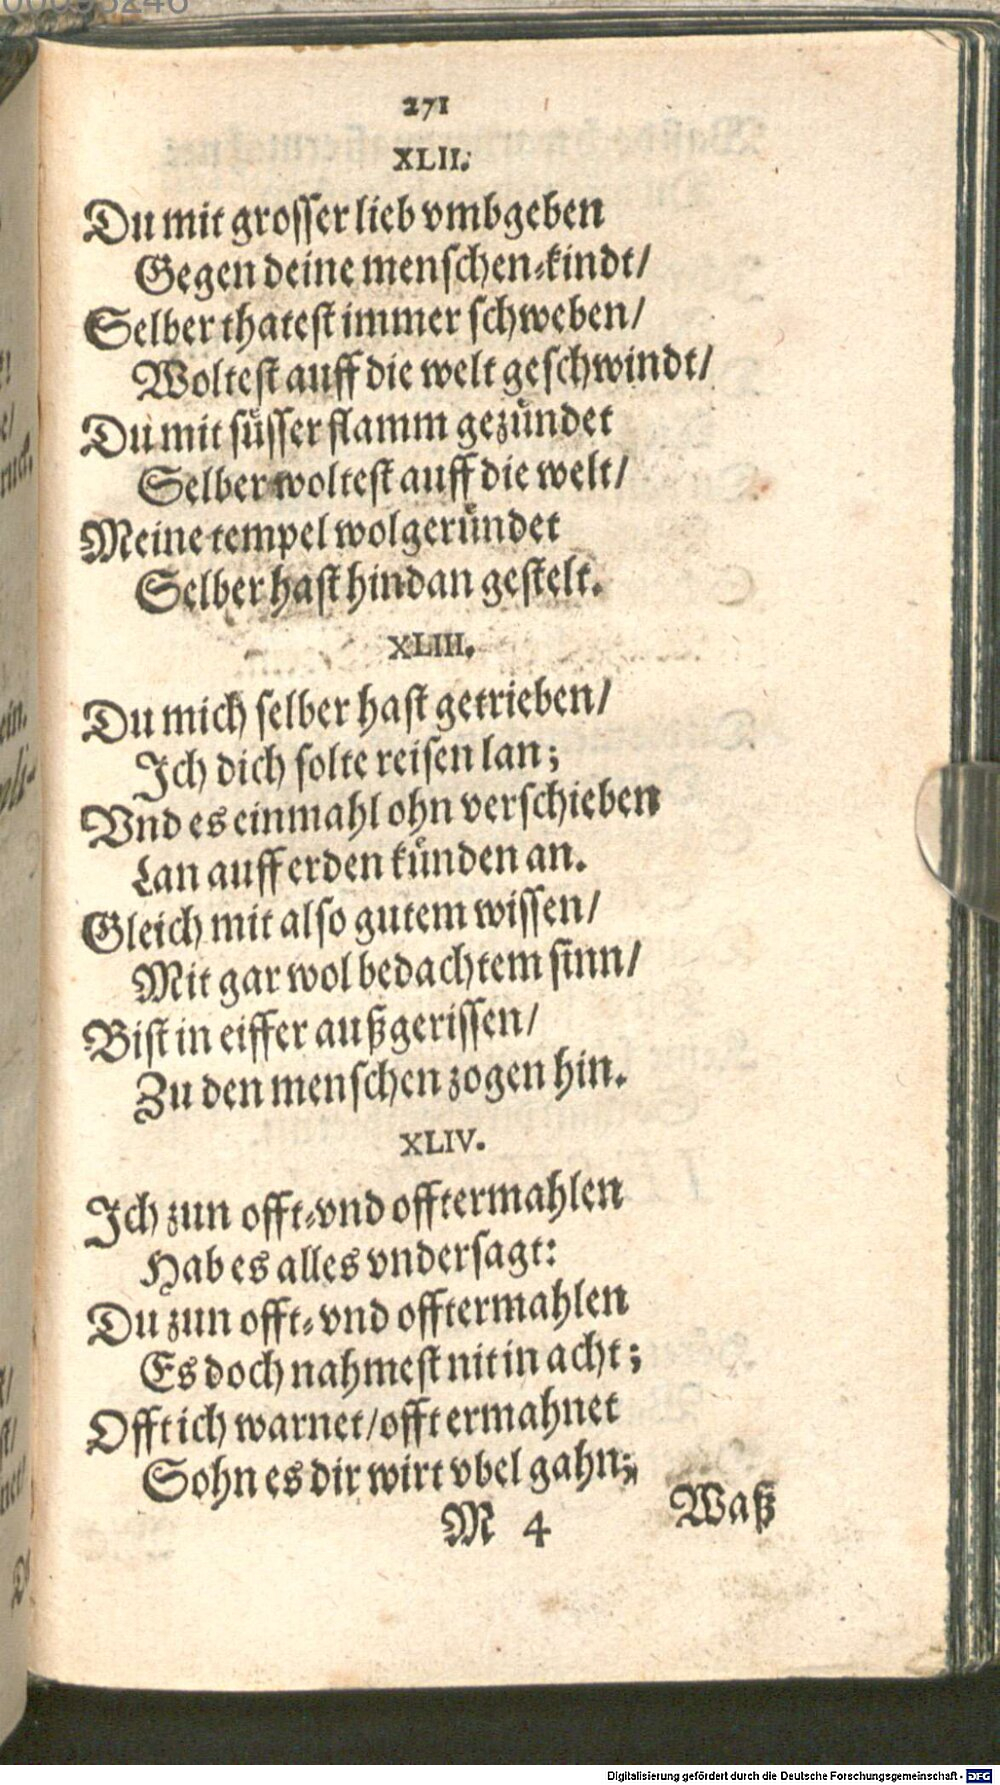 271
XLII.
Du mit grosser lieb vmbgeben
Gegen deine menschen-kindt/
Selber thatest immer schweben/
Woltest auff die welt geschwindt/
Du mit süsser flamm gezündet
Selber woltest auff die welt/
Meine tempel wolgeründet
Selber hast hindan gestelt.
XLIII.
Du mich selber hast getrieben/
Ich dich solte reisen lan;
Vnd es einmahl ohn verschieben
Lan auff erden künden an.
Gleich mit also gutem wissen/
Mit gar wol bedachtem sinn/
Bist in eiffer außgerissen/
Zu den menschen zogen hin.
XLIV.
Ich zun offt-vnd offtermahlen
Hab es alles vndersagt:
Du zun offt-vnd offtermahlen
Es doch nahmest nit in acht;
Offt ich warnet/offt ermahnet
Sohn es dir wirt vbel gahn;
M 4 Waß
Digitalisierung gefördert durch die Deutsche Forschungsgemeinschaft - DFG